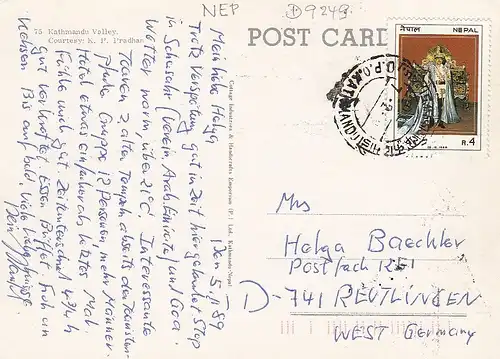 NEP
D9249
75 Kathmandu Valley.
Courtesy: K. P. Pradhan
POST CARD
नेपाल
NEPAL
R. 4
Cottage Industries & Handicrafts Emporium (P.) Ltd., Kathmandu-Nepal
Den 5.11.89
Meine liebe Helga
Trotz Verspätung gut in Zeit hier gelandet Stop
in Schasahr (Verein. Arab. Emirate) und Goa.
Wetter warm, über 21°C. Interessante
Touren z. alten Tempeln abseits der Touristen
Gruppe 12 Personen, mehr Männer.
Hotel etwas einfacher als letztes Mal.
Fühle mich gut. Zeitunterschied 4 3/4 h
gut verkraftet. Essen Büffet früh um
Bis auf bald, viele liebe Grüsse
Dein
Mrs
Helga Baechler
Postfach 1251
D-741 REUTLINGEN
WEST Germany